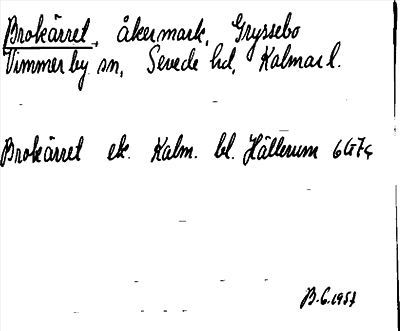 Brokärret, åkermark, Gryssebo
Vimmerby sn, Sevede hd, Kalmar l.
Brokärret ek. Kalm. bl. Hällerum 6G7c
B.G. 1957